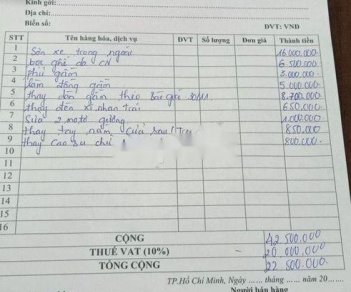 Kính gửi:
Địa chỉ:
Biển số:
ĐVT: VNĐ
STT Tên hàng hóa, dịch vụ ĐVT Số lượng Đơn giá Thành tiền
1 Sơn xe trong ngoài 16.000.000
2 bọc ghế da CN 6.500.000
3 phủ gầm 3.000.000
4 làm đồng gầm 5.000.000
5 thay dàn gầm theo Báo giá 8.700.000
6 thay đèn xi nhan trái 650.000
7 Sửa 2 moto gương 1.000.000
8 thay tay nắm cửa sau 850.000
9 thay cao su chỉ 800.000
10
11
12
13
14
15
16
CỘNG 42 500.000
THUẾ VAT (10%) 20 000.000
TỔNG CỘNG 22 500.000
TP.Hồ Chí Minh, Ngày ...... tháng ...... năm 20......
Người bán hàng